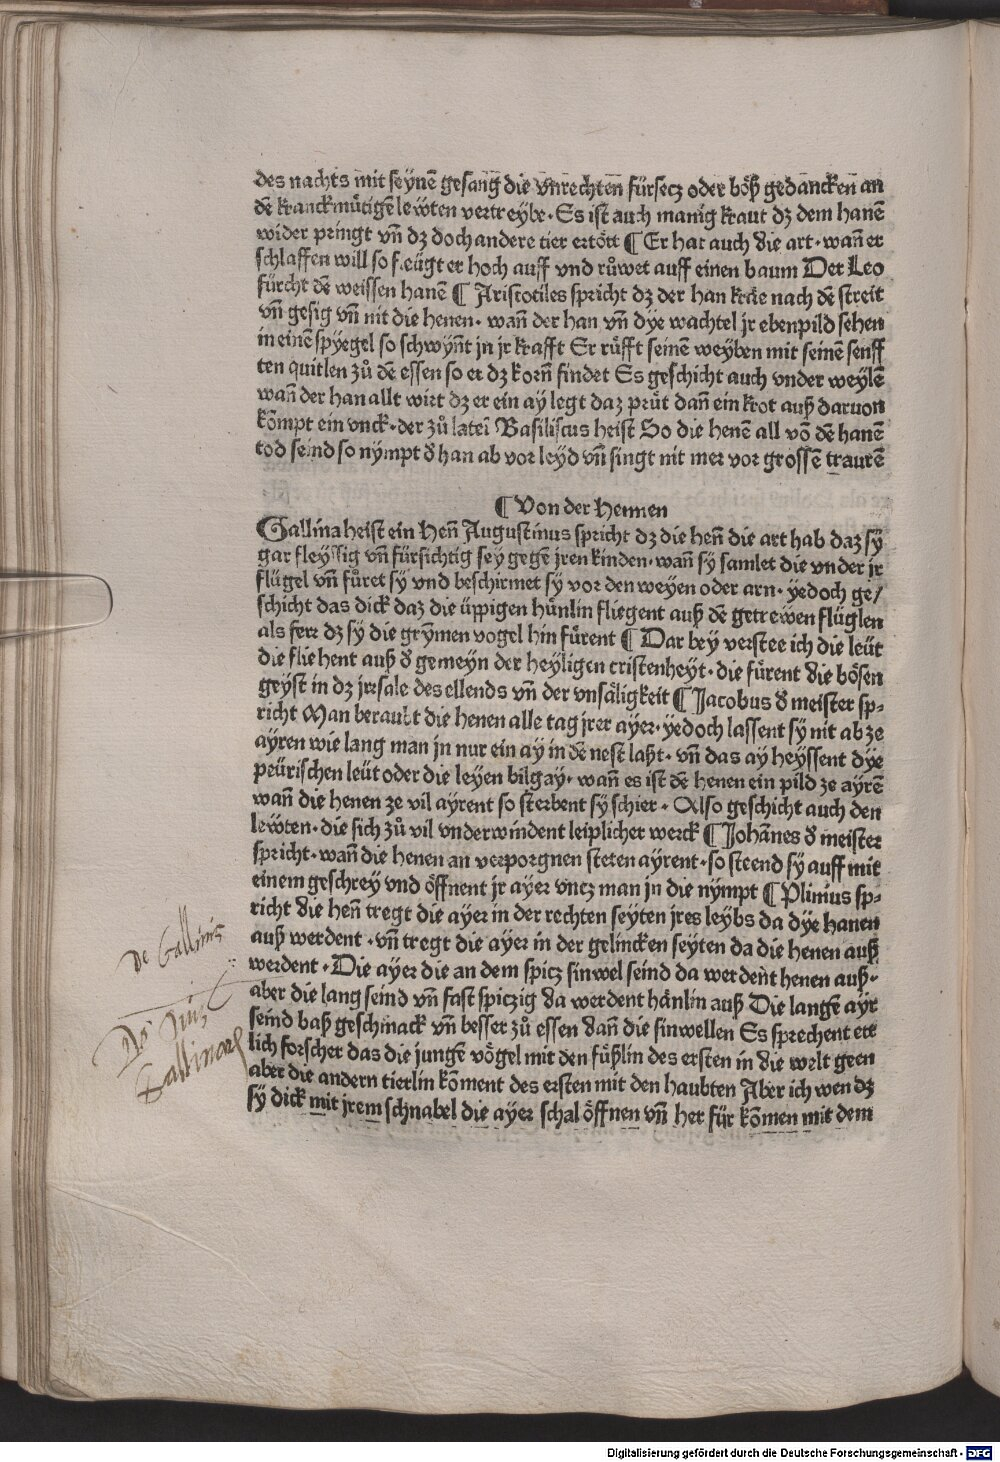 des nachts mit seynē gesang die vnrechten fürsecz oder böß gedancken an
dē kranckmuͤtigē lewten vertreybe · Es ist auch manig kraut dz dem hanē
wider pringt vn̄ dz doch andere tier ertött ¶ Er hat auch die art · wan̄ er
schlaffen will so fleügt er hoch auff vnd ruͦwet auff einen baum Der Leo
fürcht dē weissen hanē ¶ Aristotiles spricht dz der han kräe nach dē streit
vn̄ gesig vn̄ nit die henen · wan̄ der han vn̄ dye wachtel jr ebenpild sehen
in einē spyegel so schwyn̄t jn jr krafft Er ruͤfft seinē weyben mit seinē senff
ten quitlen zuͦ dē essen so er dz korn̄ findet Es geschicht auch vnder weylē
wan̄ der han allt wirt dz er ein ay legt daz pruͤt dan̄ ein krot auß daruon
kōmpt ein vnck · der zuͦ latei Basiliscus heist So die henē all vō dē hanē
tod seind so nympt d han ab vor leyd vn̄ singt nit mer vor grossē traurē
¶ Von der Hennen
Gallina heist ein Hen̄ Augustinus spricht dz die hen̄ die art hab daz sy
gar fleyssig vn̄ fürsichtig sey gegē jren kinden · wan̄ sy samlet die vnder jr
flügel vn̄ fuͦret sy vnd beschirmet sy vor den weyen oder arn · yedoch ge/
schicht das dick daz die üppigen huͤnlin fliegent auß dē getrewen flüglen
als ferr dz sy die grȳmen vogel hin fuͤrent ¶ Dar bey verstee ich die leüt
die fliehent auß d gemeyn der heyligen cristenheyt · die fuͤrent die bösen
geyst in dz jrrsale des ellends vn̄ der vnsäligkeit ¶ Jacobus d meister sp-
richt Man beraubt die henen alle tag jrer ayer · yedoch lassent sy nit ab ze
ayren wie lang man jn nur ein ay in dē nest laßt · vn̄ das ay heyssent dye
peürischen leüt oder die leyen bilgay · wan̄ es ist dē henen ein pild ze ayrē
wan̄ die henen ze vil ayrent so sterbent sy schier · Also geschicht auch den
lewten · die sich zuͦ vil vnderwindent leiplicher werck ¶ Johānes d meister
spricht · wan̄ die henen an verporgnen steten ayrent · so steend sy auff mit
einem geschrey vnd öffnent jr ayer vncz man jn die nympt ¶ Plinius sp-
richt die hen̄ tregt die ayer in der rechten seyten jres leybs da dye hanen
auß werdent · vn̄ tregt die ayer in der gelincken seyten da die henen auß
werdent · Die ayer die an dem spicz sinwel seind da werdent henen auß ·
aber die lang seind vn̄ fast spiczig da werdent hänlin auß Die langē ayr
seind baß geschmack vn̄ besser zuͦ essen dan̄ die sinwellen Es sprechent ett
lich forscher das die jungē vögel mit den fuͤßlin des ersten in die welt geen
aber die andern tierlin kōment des ersten mit den haubten Aber ich wen dz
sy dick mit jrem schnabel die ayer schal öffnen vn̄ her für kōmen mit dem
De Gallinis
Gallinarꝫ
Digitalisierung gefördert durch die Deutsche Forschungsgemeinschaft - DFG